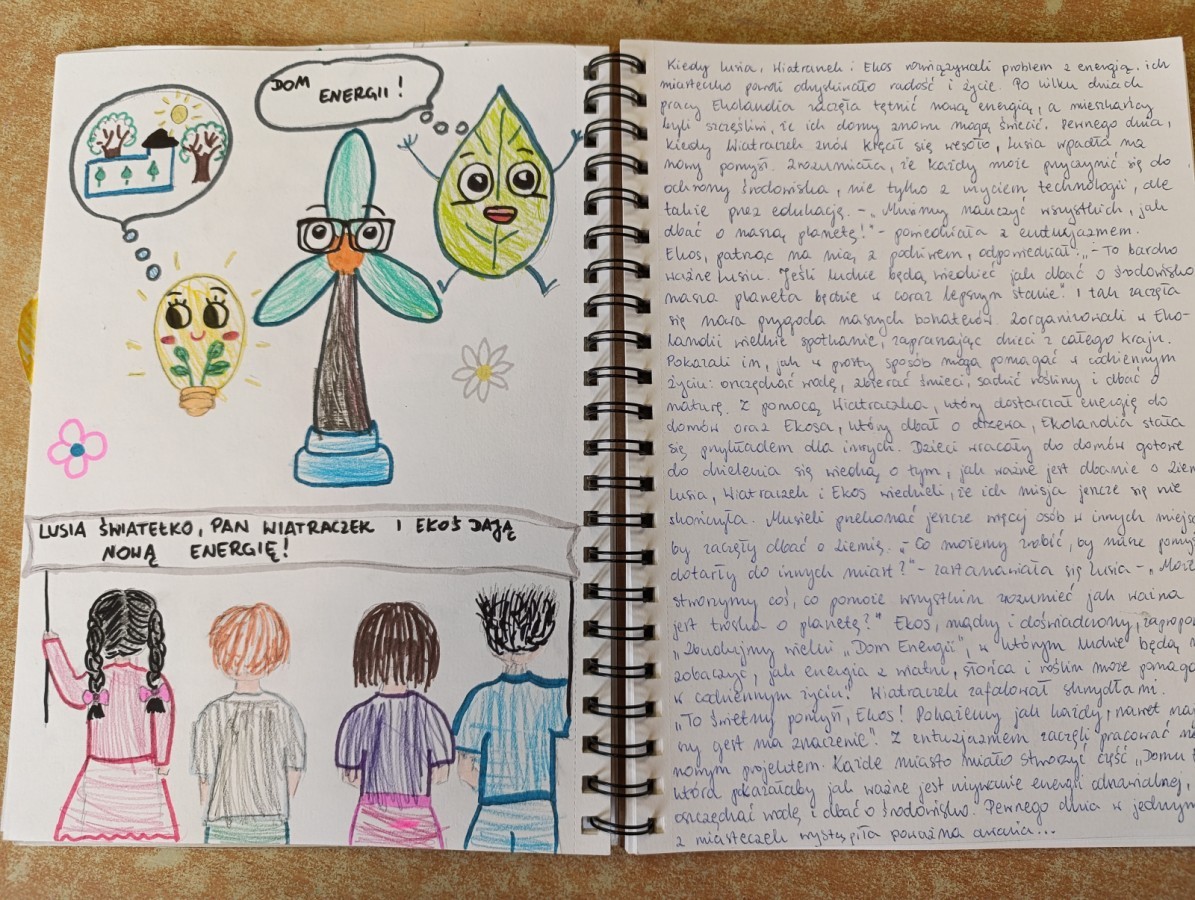 DOM
ENERGII!
LUSIA ŚWIATEŁKO, PAN WIATRACZEK I EKOŚ DAJĄ
NOWĄ ENERGIĘ!
Kiedy Lusia, Wiatraczek i Ekoś rozwiązywali problem z energią, ich
miasteczko powoli odzyskiwało radość i życie. Po kilku dniach
pracy Ekolandia zaczęła tętnić nową energią, a mieszkańcy
byli szczęśliwi, że ich domy znowu mogą świecić. Pewnego dnia,
kiedy Wiatraczek znów kręcił się wesoło, Lusia wpadła na
nowy pomysł. Zrozumiała, że każdy może przyczynić się do
ochrony środowiska, nie tylko z użyciem technologii, ale
także przez edukację. - „Musimy nauczyć wszystkich, jak
dbać o naszą planetę!" - powiedziała z entuzjazmem.
Ekoś, patrząc na nią z podziwem, odpowiedział: „- To bardzo
ważne Lusiu. Jeśli ludzie będą wiedzieć jak dbać o środowisko
nasza planeta będzie w coraz lepszym stanie." I tak zaczęła
się nowa przygoda naszych bohaterów. Zorganizowali w Eko-
landii wielkie spotkanie, zapraszając dzieci z całego kraju.
Pokazali im, jak w prosty sposób mogą pomagać w codziennym
życiu: oszczędzać wodę, zbierać śmieci, sadzić rośliny i dbać o
naturę. Z pomocą Wiatraczka, który dostarczał energię do
domów oraz Ekosia, który dbał o drzewa, Ekolandia stała
się przykładem dla innych. Dzieci wracały do domów gotowe
do dzielenia się wiedzą o tym, jak ważne jest dbanie o Ziem
Lusia, Wiatraczek i Ekoś wiedzieli, że ich misja jeszcze się nie
skończyła. Musieli przekonać jeszcze więcej osób w innych miejsc
by zaczęły dbać o Ziemię. „- Co możemy zrobić, by nasze pomys
dotarły do innych miast?" - zastanawiała się Lusia - „Moż
stworzymy coś, co pomoże wszystkim zrozumieć jak ważna
jest troska o planetę?" Ekoś, mądry i doświadczony, zapropo
„Zbudujmy wielki „Dom Energii", w którym ludzie będą
zobaczyć, jak energia z wiatru, słońca i roślin może pomaga
w codziennym życiu! Wiatraczek zafalował skrzydłami.
„To świetny pomysł, Ekoś! Pokażemy jak każdy, nawet ma
ny gest ma znaczenie". Z entuzjazmem zaczęli pracować na
nowym projektem. Każde miasto miało stworzyć część „Domu
która pokazałaby jak ważne jest używanie energii odnawialnej,
oszczędzać wodę i dbać o środowisko. Pewnego dnia w jednym
z miasteczek wystąpiła poważna awaria...